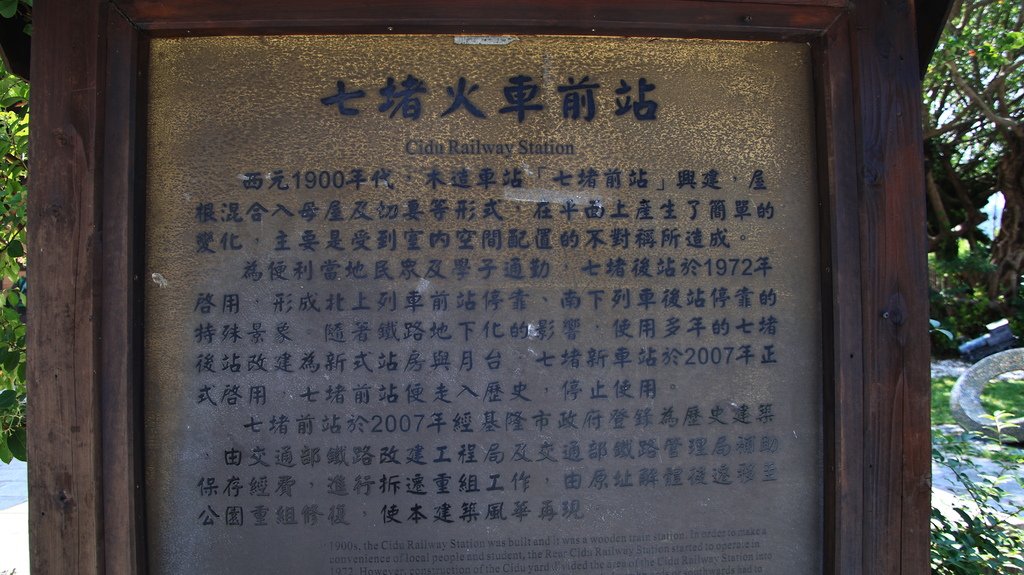 七堵火車前站
Cidu Railway Station
西元1900年代，木造車站「七堵前站」興建，屋
根混合入母屋及切妻等形式，在斗面上產生了簡單的
變化，主要是受到室內空間配置的不對稱所造成。
為便利當地民眾及學子通勤，七堵後站於1972年
啓用，形成北上列車前站停靠、南下列車後站停靠的
特殊景象。隨著鐵路地下化的影響，使用多年的七堵
後站改建為新式站房與月台，七堵新車站於2007年正
式啓用，七堵前站便走入歷史，停止使用。
七堵前站於2007年經基隆市政府登錄為歷史建築
，由交通部鐵路改建工程局及交通部鐵路管理局補助
保存經費，進行拆遷重組工作，由原址解體後遷移至
公園重組修復，使本建築風華再現
1900s, the Cidu Railway Station was built and it was a wooden train station. In order to make a
convenience of local people and student, the Rear Cidu Railway Station started to operate in
1972. However, construction of the Cidu yard divided the area of the Cidu Railway Station into